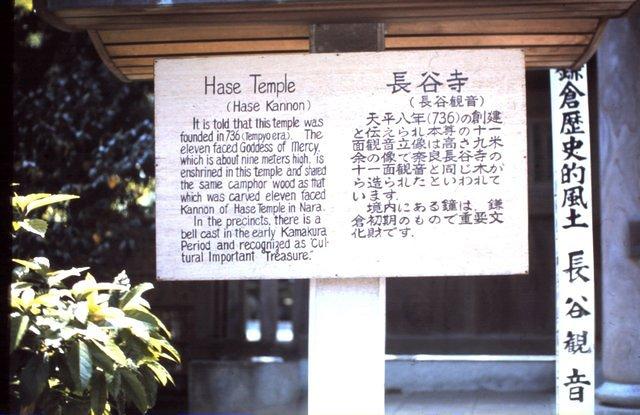 Hase Temple
(Hase Kannon)
It is told that this temple was
founded in 736 (Tempyo era). The
eleven faced Goddess of Mercy,
which is about nine meters high, is
enshrined in this temple and shared
the same camphor wood as that
which was carved eleven faced
Kannon of Hase Temple in Nara.
In the precincts, there is a
bell cast in the early Kamakura
Period and recognized as "Cul-
tural Important "Treasure."
長谷寺
(長谷観音)
天平八年(736)の創建
と伝えられ本尊の十一
面観音立像は高さ九米
余の像で奈良長谷寺の
十一面観音と同じ木が
ら造られたといわれて
います.
境内にある鐘は、鎌
倉初期のもので重要文
化財です.
鎌倉歴史的風土 長谷観音